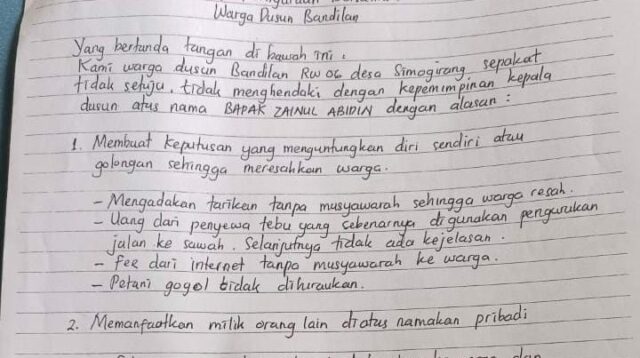 Warga Dusun Bandilan
Yang bertanda tangan di bawah ini :
Kami warga dusun Bandilan RW 06 desa Simogirang sepakat
tidak setuju, tidak menghendaki dengan kepemimpinan kepala
dusun atas nama BAPAK ZAINUL ABIDIN dengan alasan :
1. Membuat keputusan yang menguntungkan diri sendiri atau
golongan sehingga meresahkan warga.
- Mengadakan tarikan tanpa musyawarah sehingga warga resah.
- Uang dari penyewa tebu yang sebenarnya digunakan pengurukan
jalan ke sawah. Selanjutnya tidak ada kejelasan.
- fee dari internet tanpa musyawarah ke warga.
- Petani gogol tidak dihiraukan.
2. Memanfaatkan milik orang lain diatas namakan pribadi